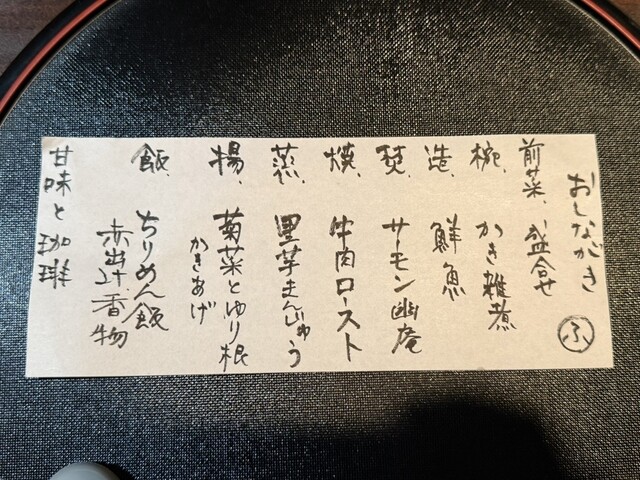 おしながき
ふ
前菜、盛合せ
椀、かき雑煮
造、鮮魚
焚、サーモン幽庵
焼、牛肉ロースト
蒸、里芋まんじゅう
揚、菊菜とゆり根
かきあげ
飯、ちりめん飯
赤出汁、香物
甘味と珈琲